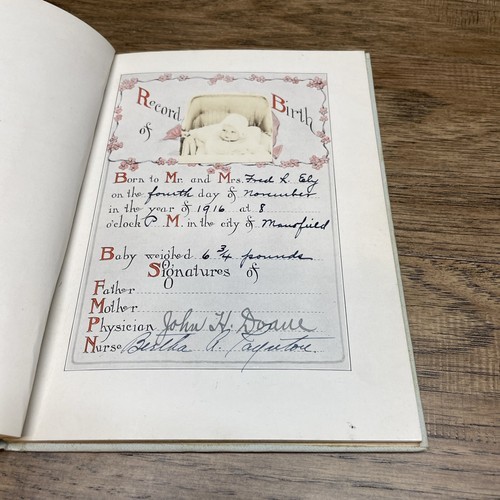 Record of Birth
Born to Mr. and Mrs. Fred L. Ely
on the fourth day of November
in the year of 1916 at 8
o'clock P. M. in the city of Mansfield
Baby weighed 6 3/4 pounds
Signatures of
Father
Mother
Physician John H. Doane
Nurse Bertha A.